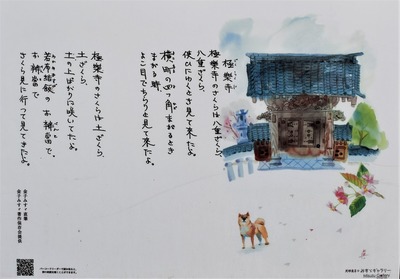 極樂寺
極樂寺のさくらは八重ざくら、
八重ざくら、
使ひにゆくとき見て來たよ。
横町の四つ角まがるとき
まがる時、
よこ目でちらりと見て來たよ。
極樂寺のさくらは土ざくら、
土ざくら、
土の上ばかりに咲いてたよ。
若布結飯のお辨當で
お辨當で
さくら見に行って見てきたよ。
金子みすゞ直筆
金子みすゞ著作保存会提供